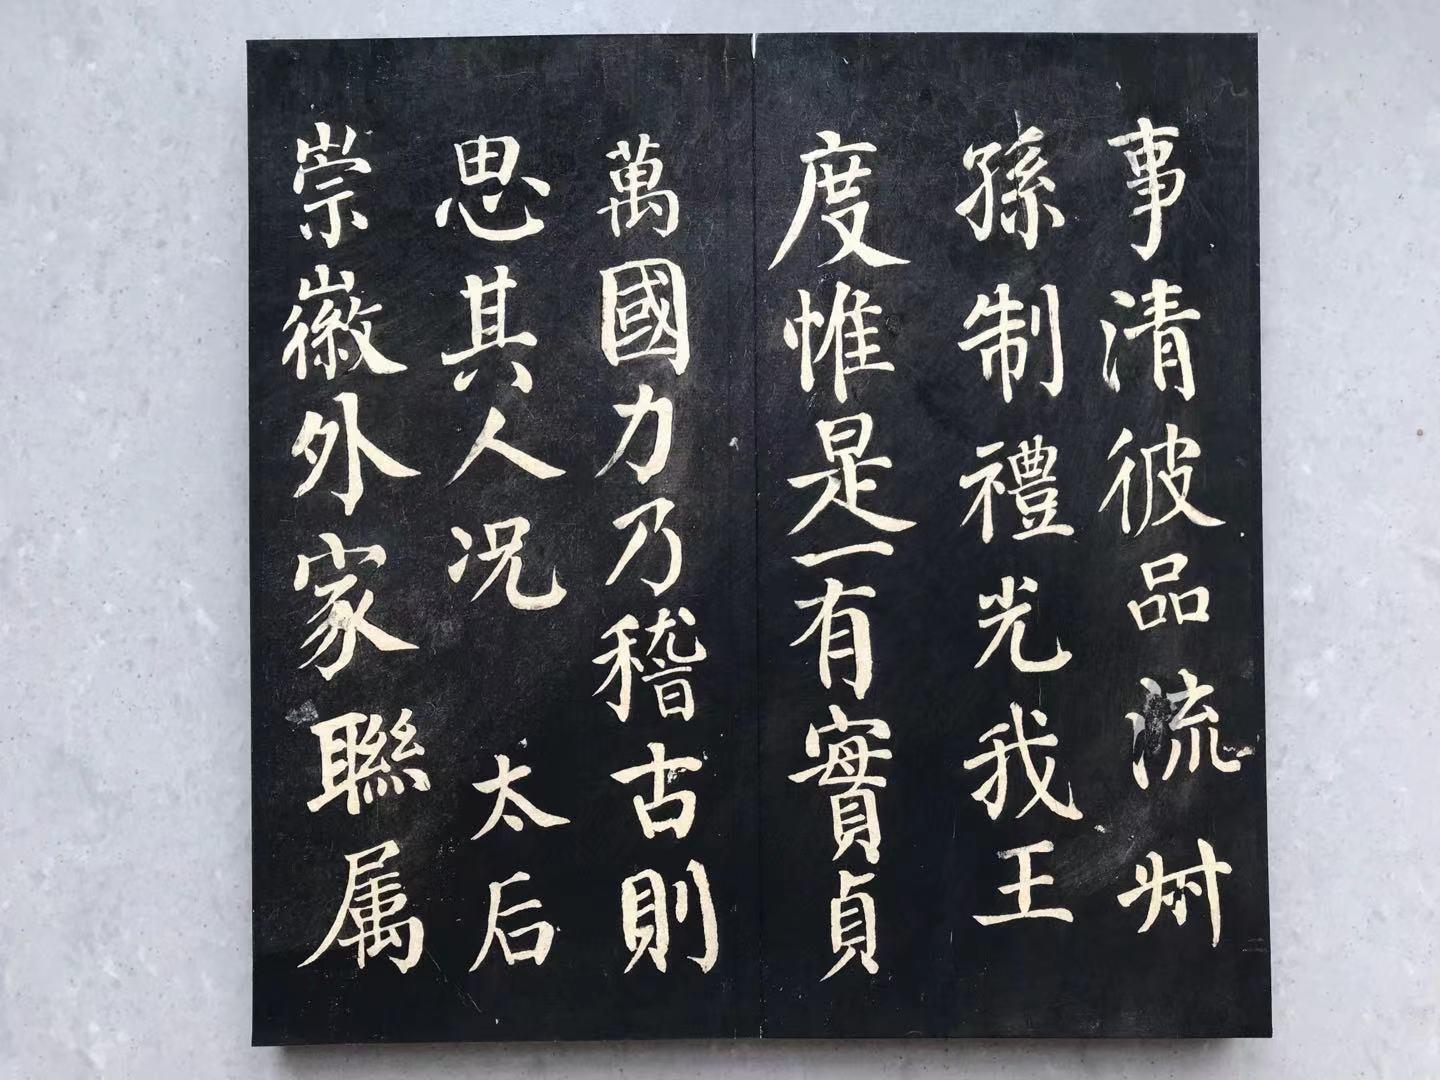 事清彼品流叔
孫制禮光我王
度惟是一有實貞
萬國力乃稽古則
思其人况　太后
崇徽外家聯属